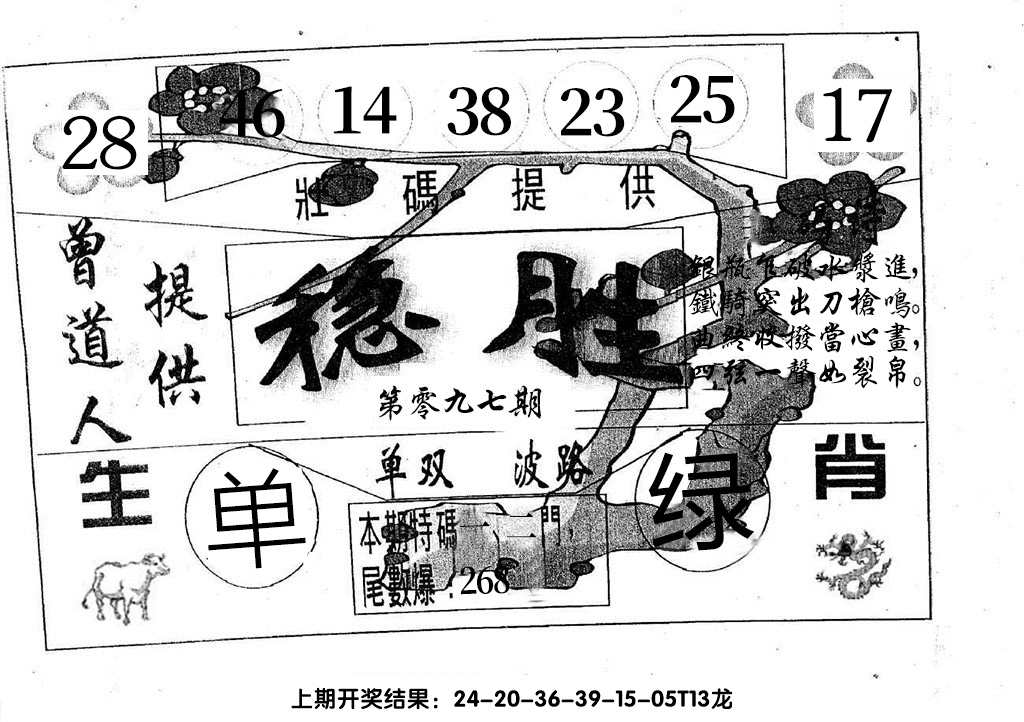 28 46 14 38 23 25 17
壯碼提供
曾道人
提供
特
稳胜
第零九七期
銀瓶乍破水漿進，
鐵騎突出刀槍鳴。
曲終收撥當心畫，
四弦一聲如裂帛。
单双 波路
生肖
单
绿
本期特碼一、二門，
尾數爆：268
上期开奖结果：24-20-36-39-15-05T13龙